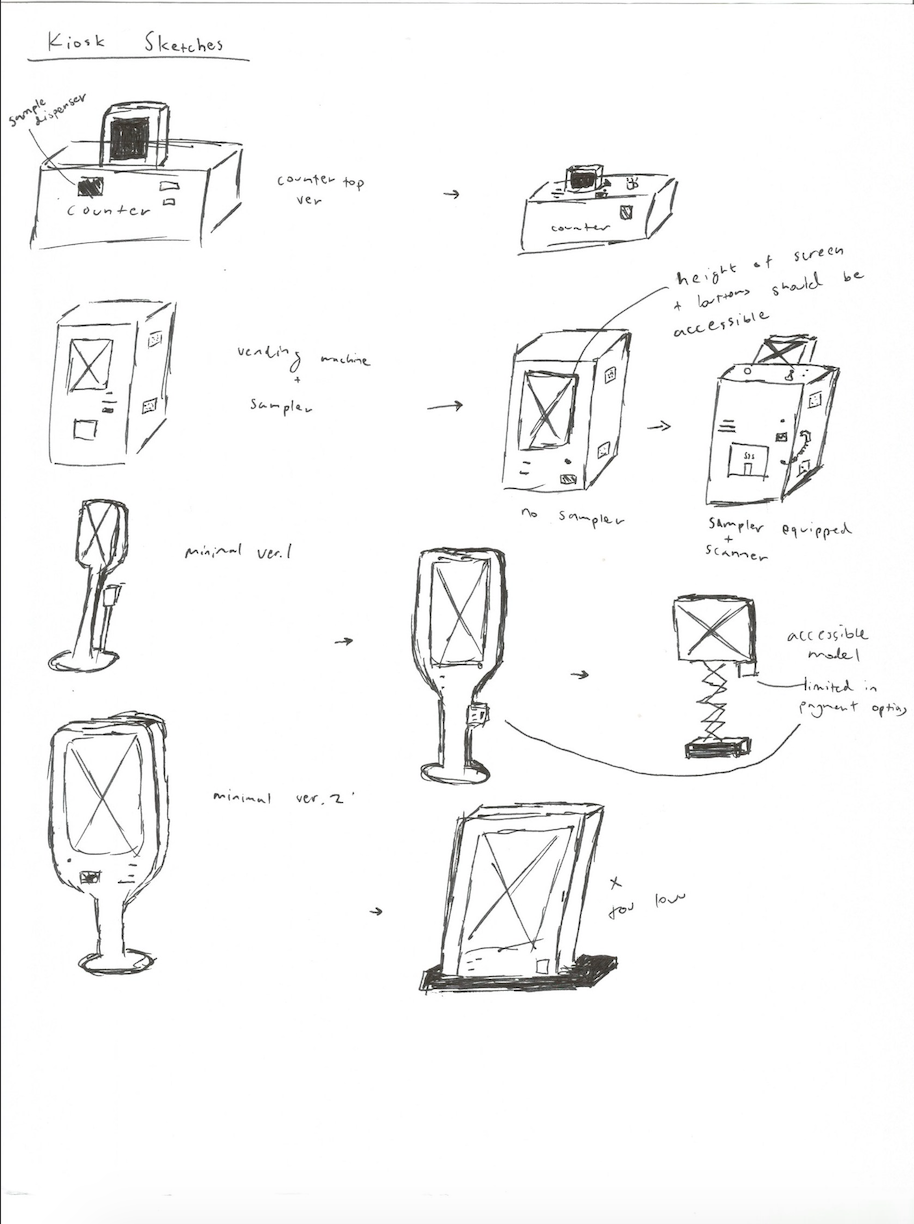 Kiosk Sketches
sample
dispenser
counter
counter top
ver
counter
height of screen
+ buttons should be
accessible
vending machine
+
sampler
no sampler
sampler equipped
+
scanner
minimal ver.1
accessible
model
limited in
payment options
minimal ver. 2
x
too low